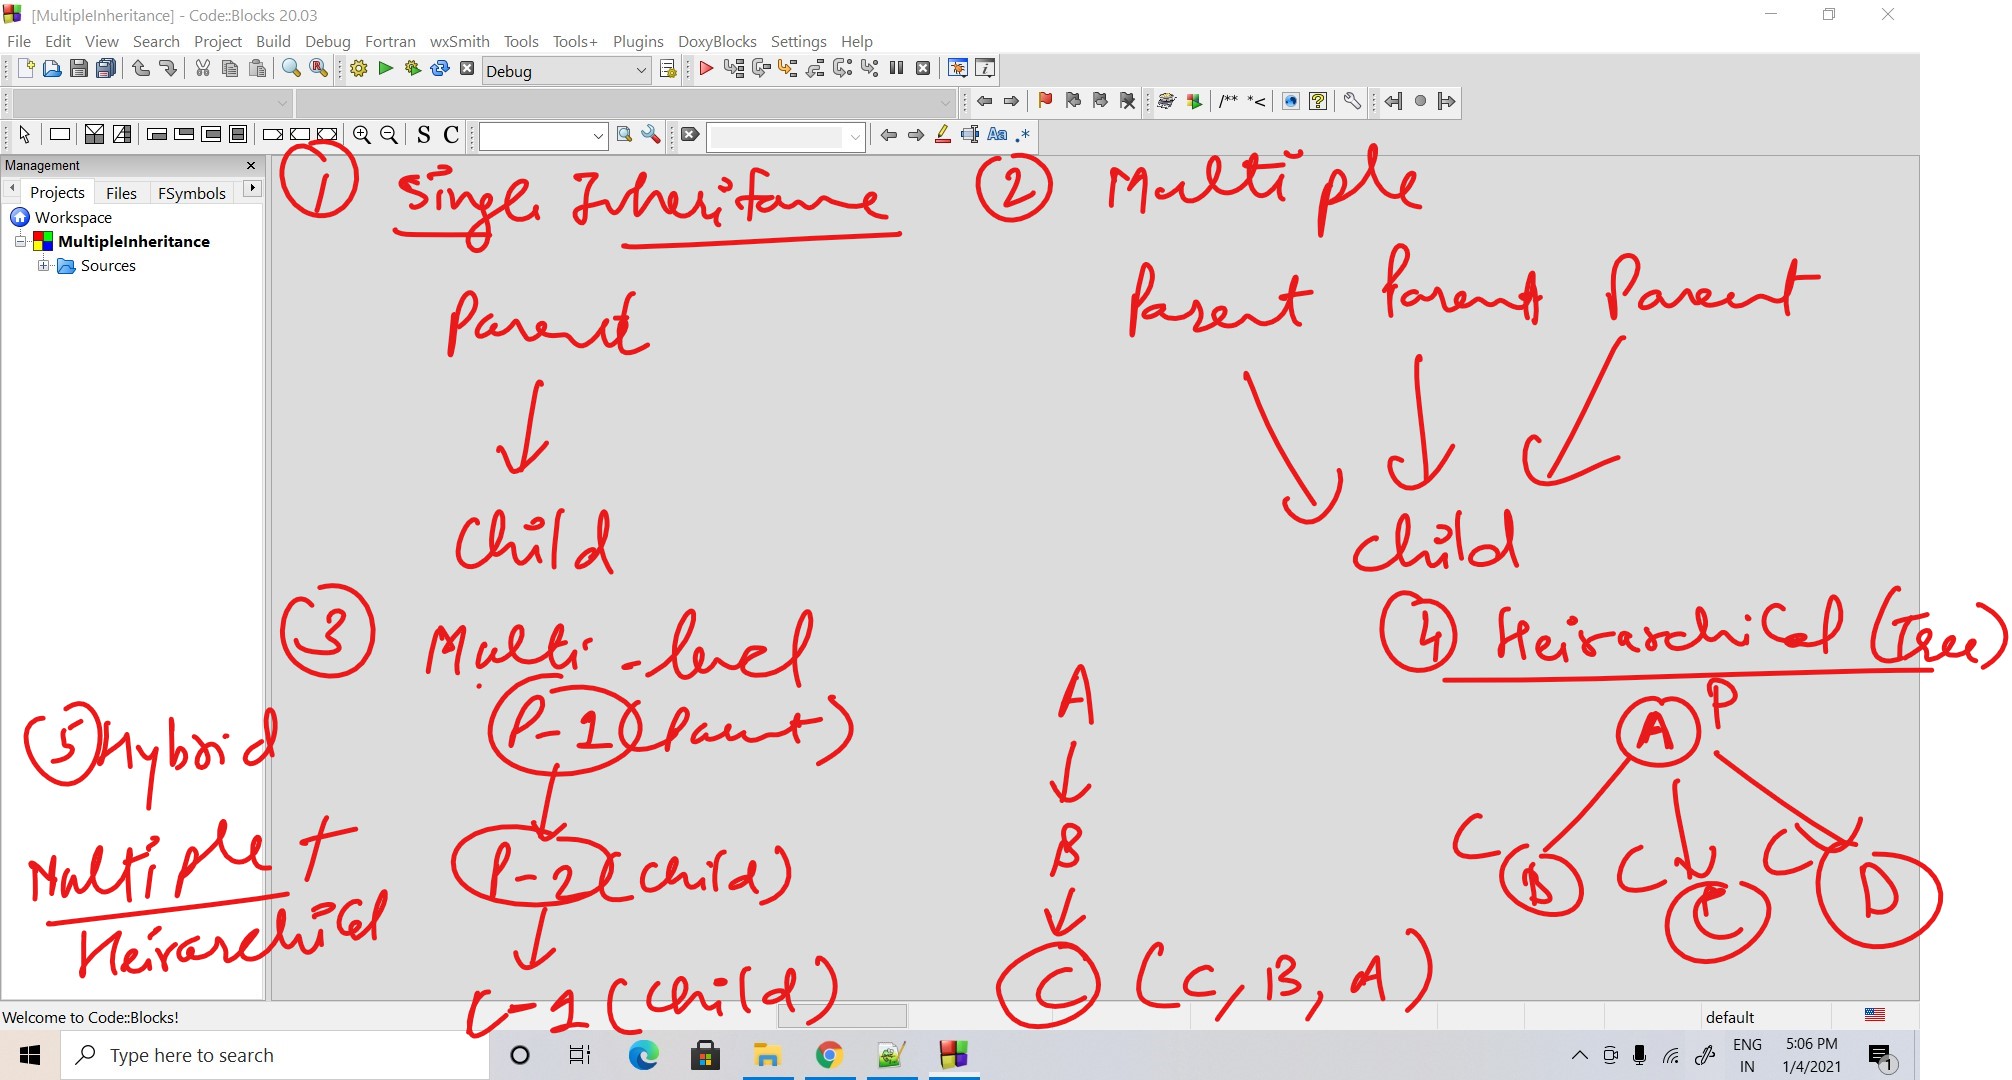 [MultipleInheritance] - Code::Blocks 20.03
File Edit View Search Project Build Debug Fortran wxSmith Tools Tools+ Plugins DoxyBlocks Settings Help
Debug
/** *<
S C
Aa .*
Management
Projects Files FSymbols
Workspace
MultipleInheritance
Sources
1 Single Inheritance
Parent
Child
2 Multiple
Parent Parent Parent
Child
3 Multi-level
P-1 (Parent)
P-2 (Child)
C-1 (Child)
A
B
C (C, B, A)
4 Heirarchical (Tree)
A P
C C C
B C D
5 Hybrid
Multiple +
Heirarchical
Welcome to Code::Blocks!
default
Type here to search
ENG
IN
5:06 PM
1/4/2021
1